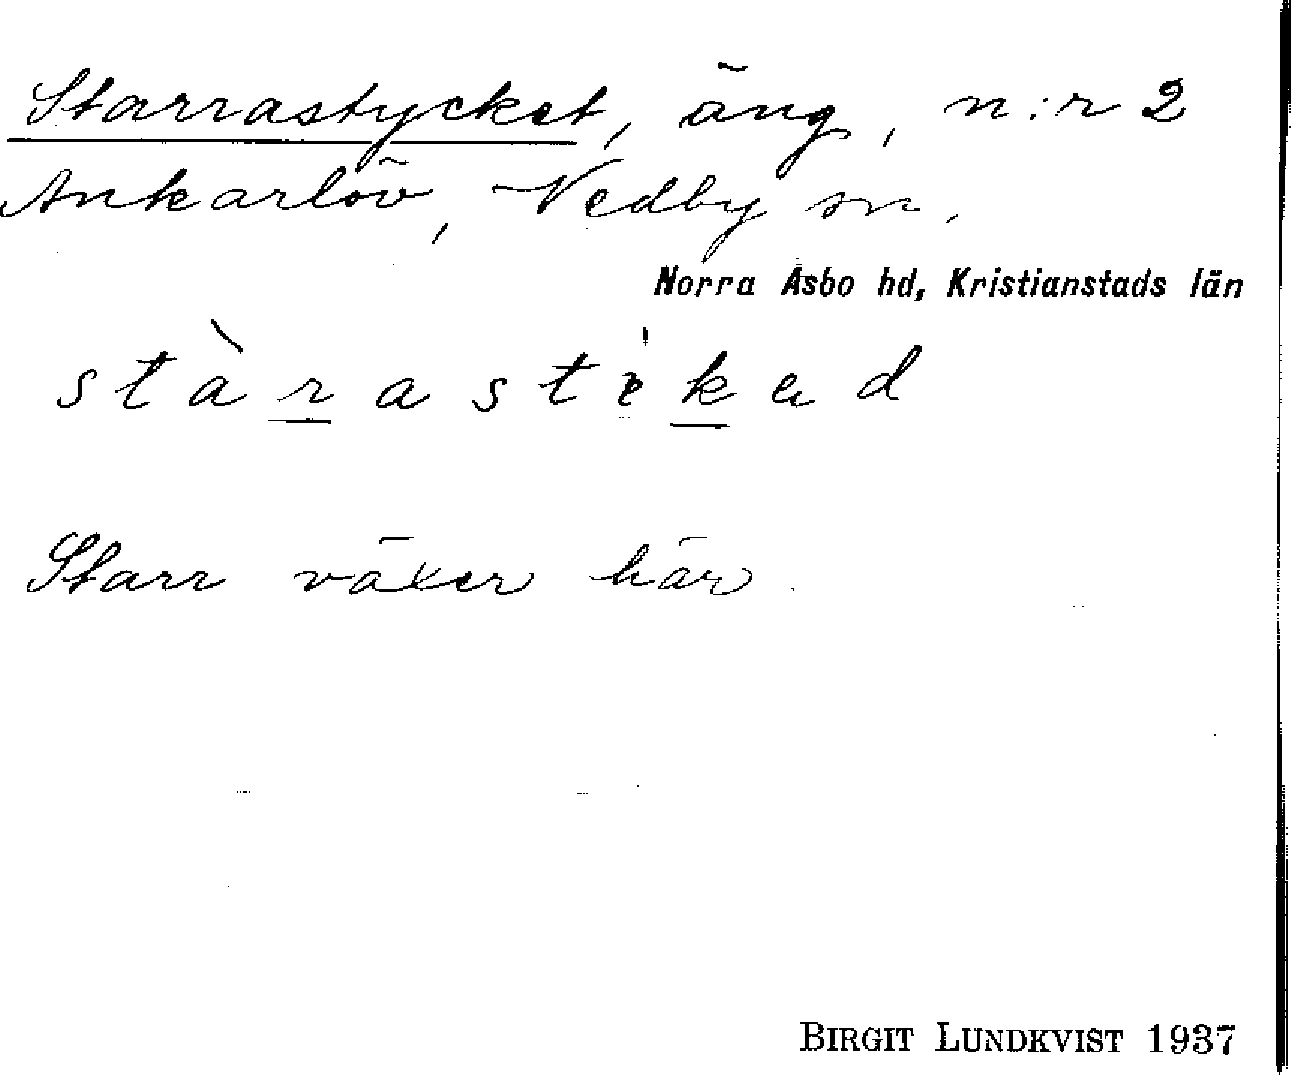 Starrastycket, äng, n:r 2
Ankarlöv, Vedby sn.
Norra Åsbo hd, Kristianstads län
stàrastikad
Starr växer här.
BIRGIT LUNDKVIST 1937